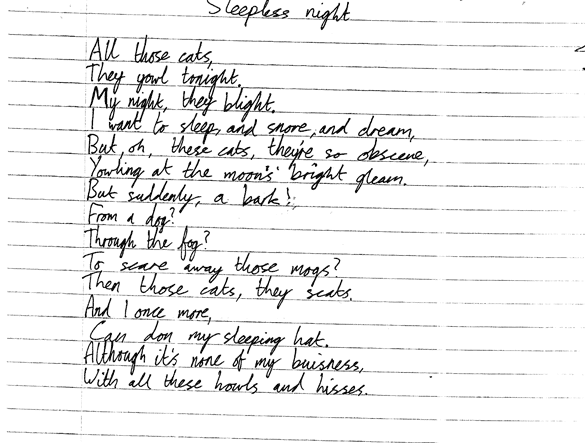 Sleepless night
All those cats,
They yowl tonight.
My night, they blight.
I want to sleep, and snore, and dream,
But, oh, these cats, they're so obscene,
Yowling at the moon's bright gleam.
But suddenly, a bark!
From a dog?
Through the fog?
To scare away those mogs?
Then those cats, they scats.
And I once more,
Can don my sleeping hat.
Although it's none of my buisness,
With all these howls and hisses.